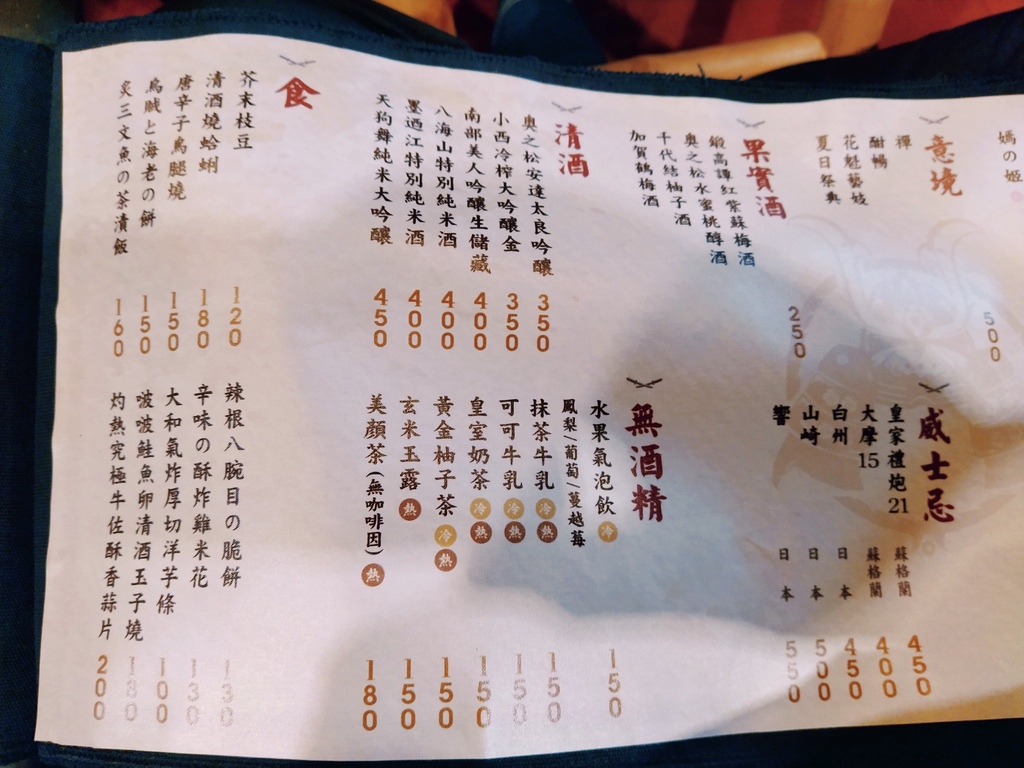 媽の姬
500
意境
禪
酣暢
花魁藝妓
夏日祭典
250
果實酒
鍛高譚紅紫蘇梅酒
奧之松水蜜桃醇酒
千代結柚子酒
加賀鶴梅酒
清酒
奧之松安達太良吟釀 350
小西冷榨大吟釀金 350
南部美人吟釀生儲藏 400
八海山特別純米酒 400
墨迺江特別純米酒 400
天狗舞純米大吟釀 450
食
芥末枝豆 120
清酒燒蛤蜊 180
唐辛子鳥腿燒 150
烏賊と海老の餅 150
炙三文魚の茶漬飯 160
威士忌
皇家禮炮21 蘇格蘭 450
大摩15 蘇格蘭 400
白州 日本 450
山崎 日本 500
響 日本 550
無酒精
水果氣泡飲 冷 150
鳳梨/葡萄/蔓越莓
抹茶牛乳 冷 熱 150
可可牛乳 冷 熱 150
皇室奶茶 冷 熱 150
黃金柚子茶 冷 熱 150
玄米玉露 熱 150
美顏茶(無咖啡因) 熱 180
辣根八腕目の脆餅 130
辛味の酥炸雞米花 130
大和氣炸厚切洋芋條 100
啵啵鮭魚卵清酒玉子燒 180
灼熱究極牛佐酥香蒜片 200